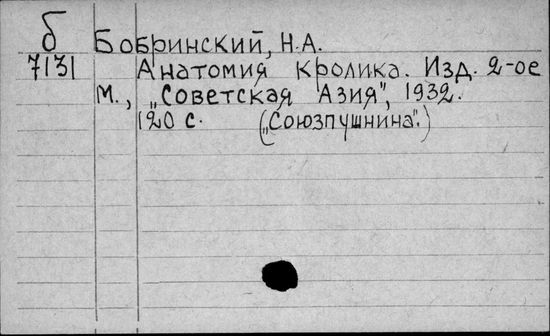 б Бобринский, Н.А.
7131 Анатомия кролика. Изд. 2-ое
М., „Советская Азия", 1932.
120 с. („Союзпушнина".)